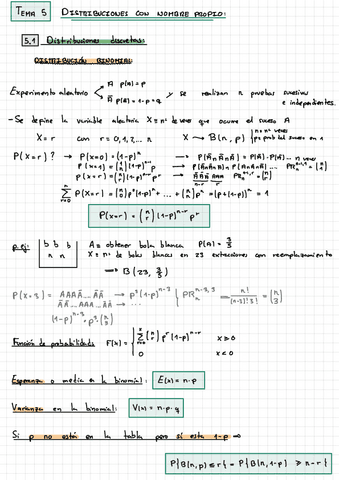 TEMA 5 DISTRIBUCIONES CON NOMBRE PROPIO:
5.1 Distribuciones discretas:
DISTRIBUCIÓN BINOMIAL:
Experimento aleatorio
A P(A)=p
Ā P(Ā)=1-p=q
y se realizan n pruebas sucesivas e independientes.
- Se define la variable aleatoria X ≡ nº de veces que ocurre el suceso A
X = r con r = 0, 1, 2, ... n X → B(n, p)
P(X=r)? → P(X=0) = (1-p)^n
P(X=1) = (n 1)(1-p)^{n-1} p
P(X=r) = (n r)(1-p)^{n-r} p^r
Σ_{r=0}^{n} P(X=r) = (n 0) p^0 (1-p)^n + ... + (n n) p^n = (p+(1-p))^n = 1
P(X=r) = (n r)(1-p)^{n-r} p^r
p.ej: b b b n n
A ≡ obtener bola blanca P(A) = 3/5
X ≡ nº de bolas blancas en 23 extracciones con reemplazamiento
→ B(23, 3/5)
P(X=3) =
(1-p)^{n-3} · p^3 (n 3)
Función de probabilidad: F(x) = Σ (n r) p^r (1-p)^{n-r} x ≥ 0
0 x < 0
Esperanza o media en la binomial: E(x) = n·p
Varianza en la binomial: V(x) = n·p·q
Si p no está en la tabla pero si está 1-p ⇒
P{B(n,p) ≤ r} = P{B(n,1-p) ≥ n-r}